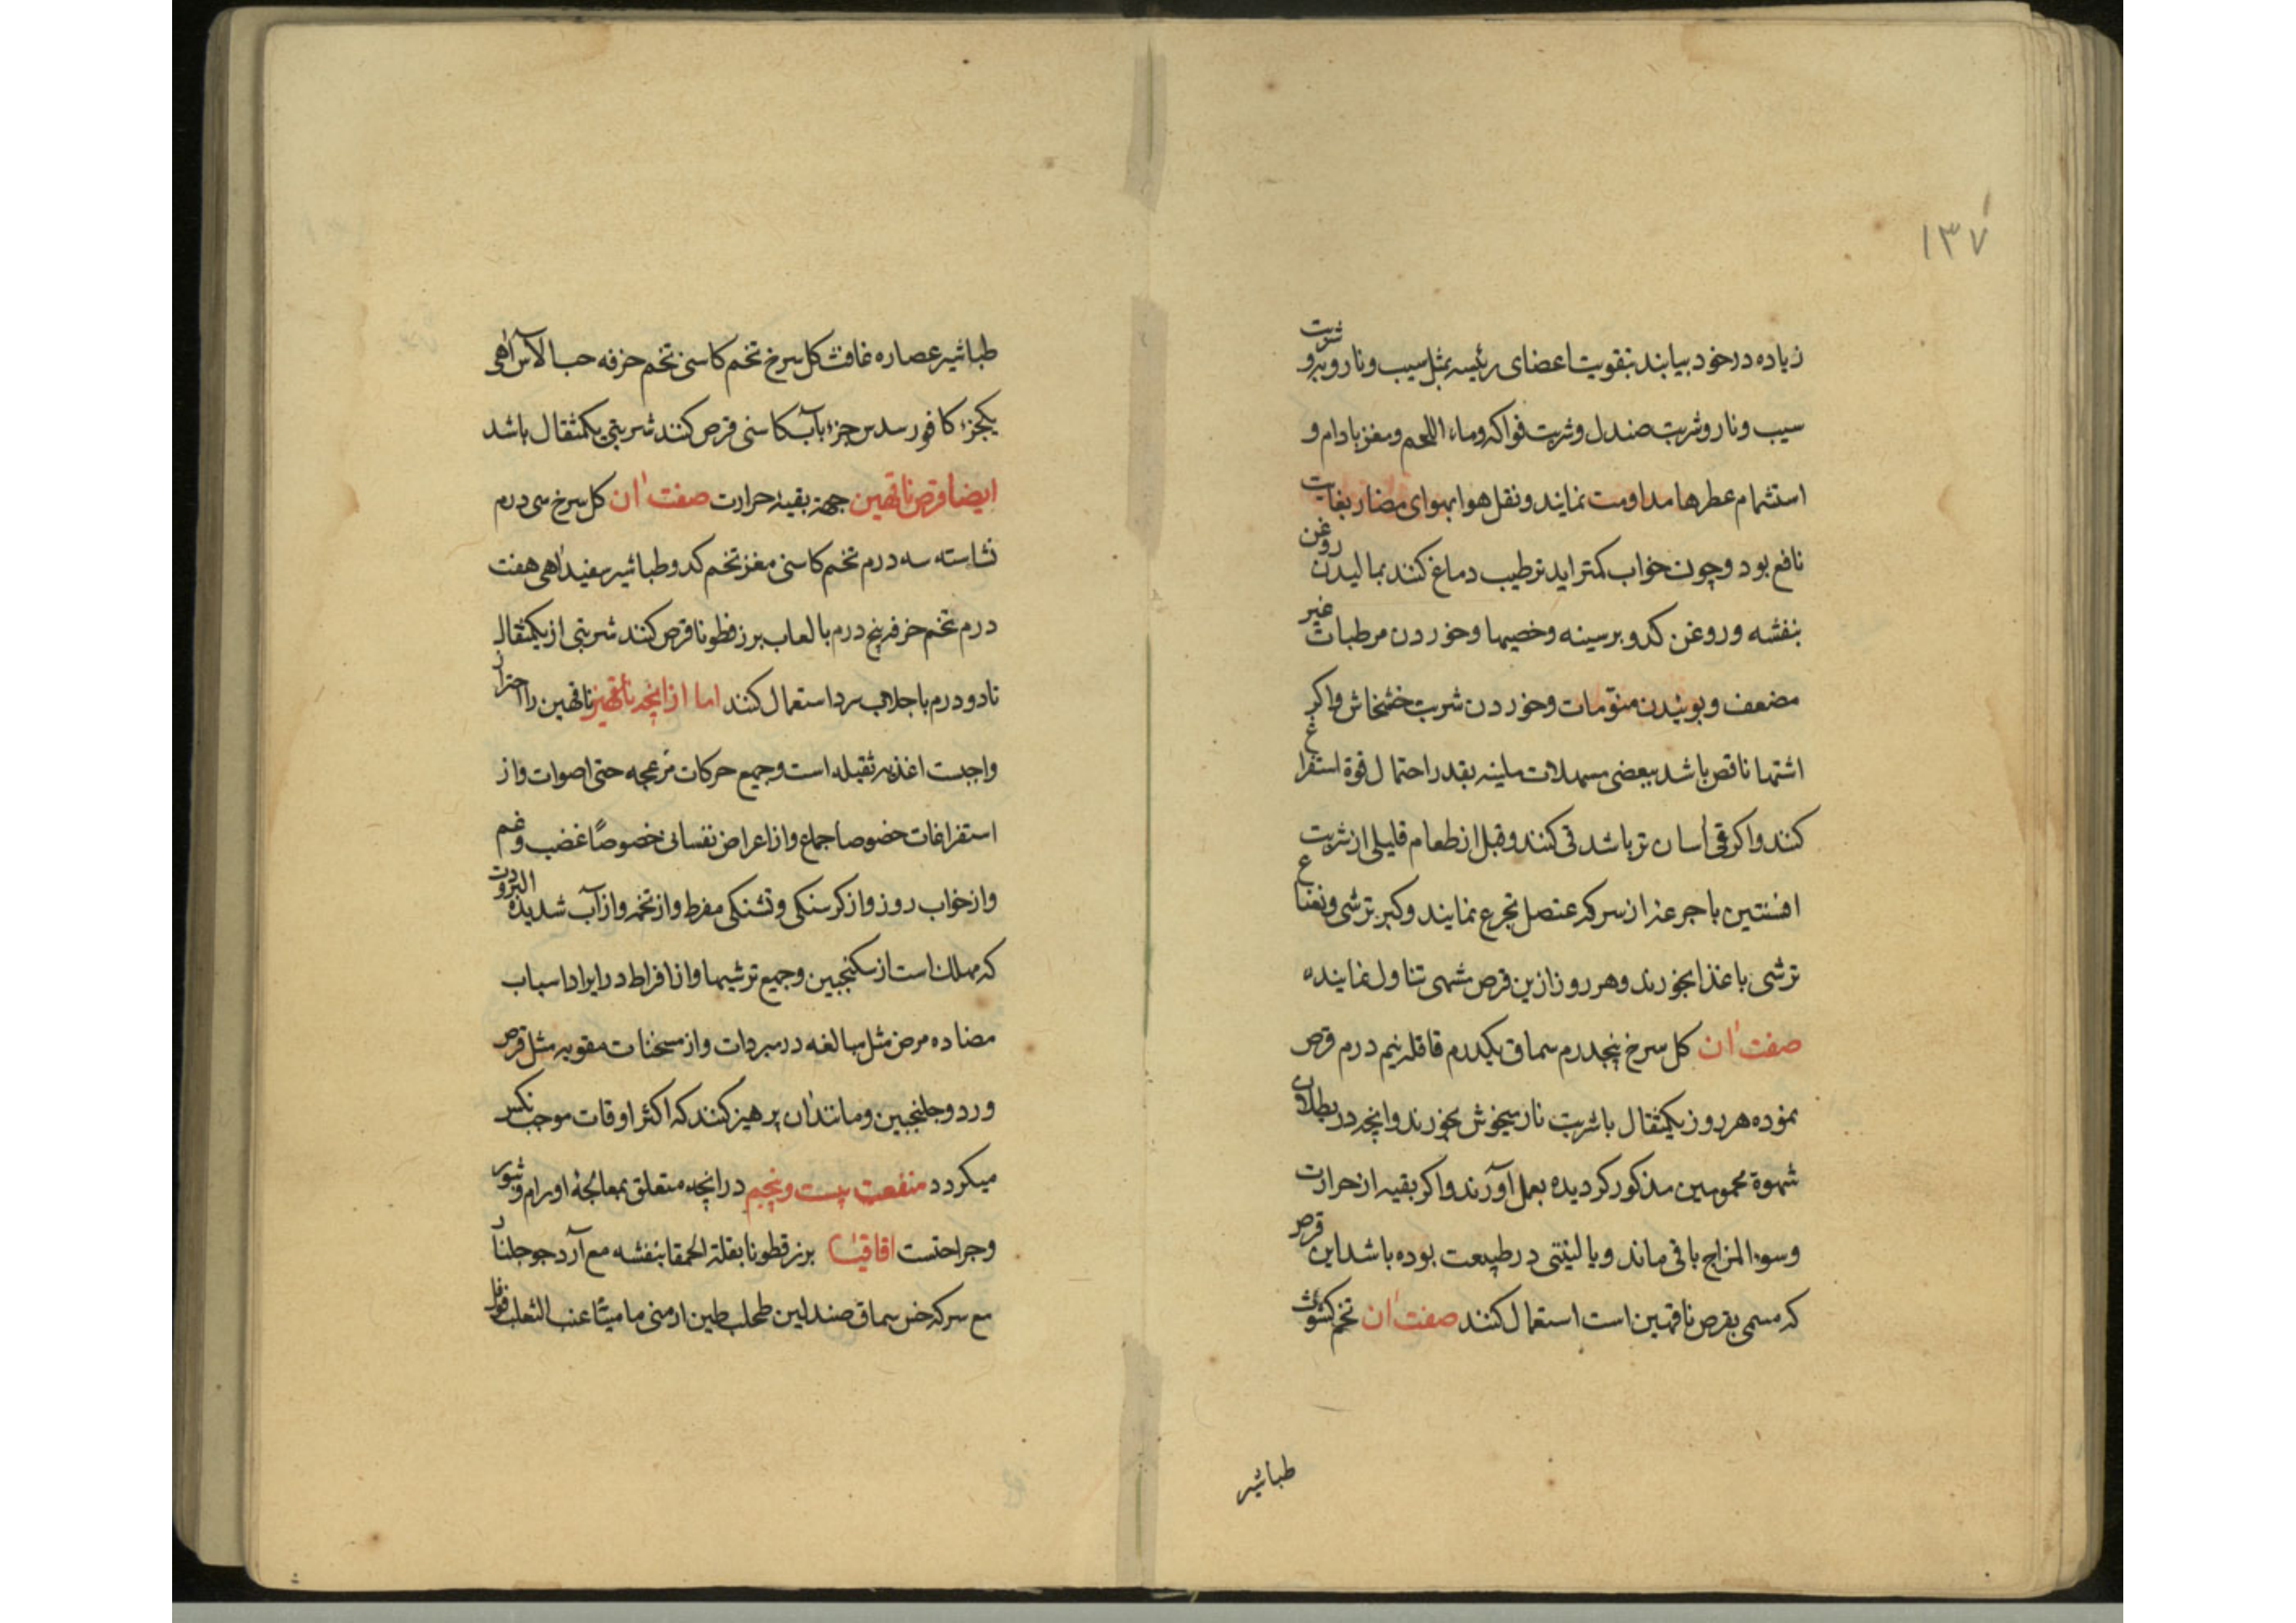 ۱۳۷
زیاده در خود بیابند بتقویت اعضای رئیسه بمثل سیب و نار و به و شربت
سیب و نار و شربت صندل و شربت فواکه و ماء اللحم و مغز بادام و
استشمام عطرها مداومت نمایند و نقل هوا بهوای مضاد بغایت
نافع بود و چون خواب کمتر اید ترطیب دماغ کنند بمالیدن روغن
بنفشه و روغن کدو بر سینه و خصیها و خوردن مرطبات غیر
مضعف و بوئیدن منوّمات و خوردن شربت خشخاش واکر
اشتها ناقص باشد ببعضی مسهلات ملینه بقدر احتمال قوة استفراغ
کنند واکر قی اسان تر باشد قی کنند و قبل از طعام قلیلی از شربت
افسنتین با جرعهٔ از سرکه عنصل تجرع نمایند و کبر ترشی و نعناع
ترشی با غذا بخورند و هر روز ازین قرص مشهی تناول نمایند
صفت ان کل سرخ پنجدرم سماق یکدرم قاقله نیم درم قرص
نموده هر روز یکمثقال با شربت نار میخوش بخورند وانچه در بطلان
شهوة محمومین مذکور کردیده بعمل آورند واکر بقیه از حرارت
و سوء المزاج باقی ماند و یا لینتی در طبیعت بوده باشد این قرص
که مسمی بقرص ناقهین است استعمال کنند صفت ان تخم کشوث
طباشیر
طباشیر عصاره غافث کل سرخ تخم کاسنی تخم خرفه حب الآس از هر یکی
یکجزء کافور سدس جزء بآب کاسنی قرص کنند شربتی یکمثقال باشد
ایضا قرص ناقهین جهة بقیهٔ حرارت صفت ان کل سرخ سی درم
نشاسته سه درم تخم کاسنی مغز تخم کدو و طباشیر سفید از هر یکی هفت
درم تخم خرفه پنج درم با لعاب برز قطونا قرص کنند شربتی از یکمثقال
تا دو درم با جلاب سرد استعمال کنند اما از انچه ناقهین را احتراز
واجبست اغذیه ثقیله است و جمیع حرکات مزعجه حتی اصوات و از
استفراغات خصوصا جماع و از اعراض نفسانی خصوصًا غضب و غم
و از خواب روز و از کرسنکی و تشنکی مفرط و از تخمه و از آب شدید البرودت
که مهلک است از سکنجبین و جمیع ترشیها و از افراط در ایراد اسباب
مضاده مرض مثل مبالغه در مبردات و از مسخنات مقویه مثل قرص
ورد و جلنجبین و مانند ان پرهیز کنند که اکثر اوقات موجب نکس
میکردد منفعت بیست و پنجم در انچه متعلق بمعالجهٔ اورام و بثور
و جراحتست اقاقیا برز قطونا بقلة الحمقا بنفشه مع آرد جو جلنار
مع سرکه خس سماق صندلین طحلب طین ارمنی مامیثا عنب الثعلب فوفل